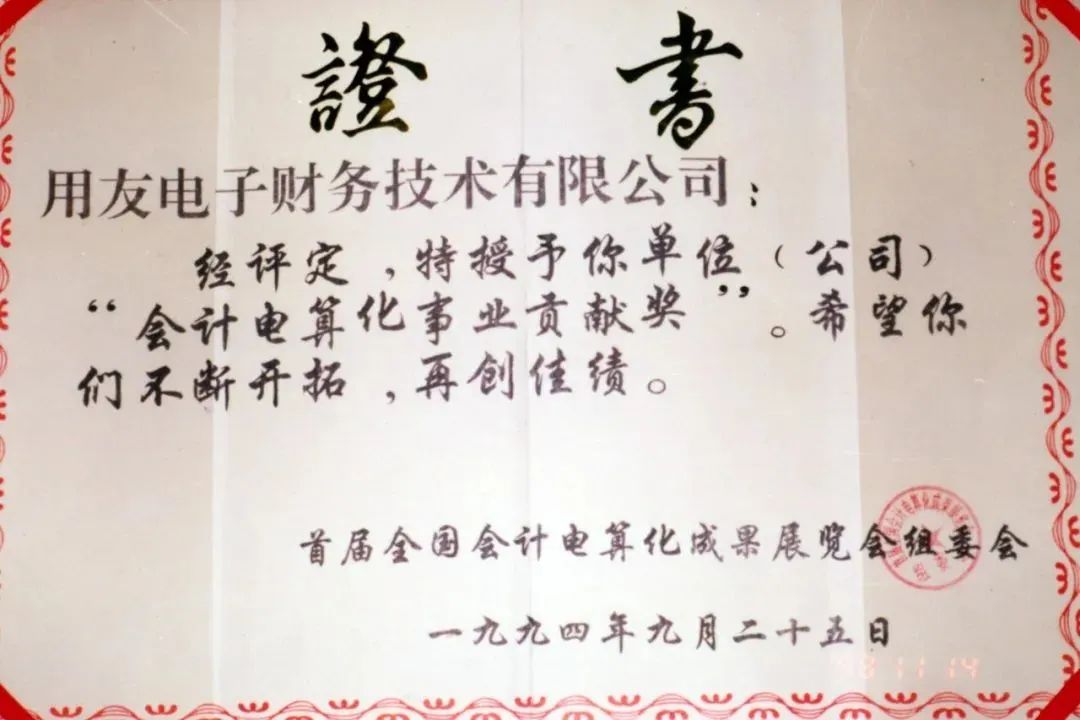 證書
用友电子财务技术有限公司：
经评定，特授予你单位（公司）
“会计电算化事业贡献奖”。希望你
们不断开拓，再创佳绩。
首届全国会计电算化成果展览会组委会
一九九四年九月二十五日
'98 11 14